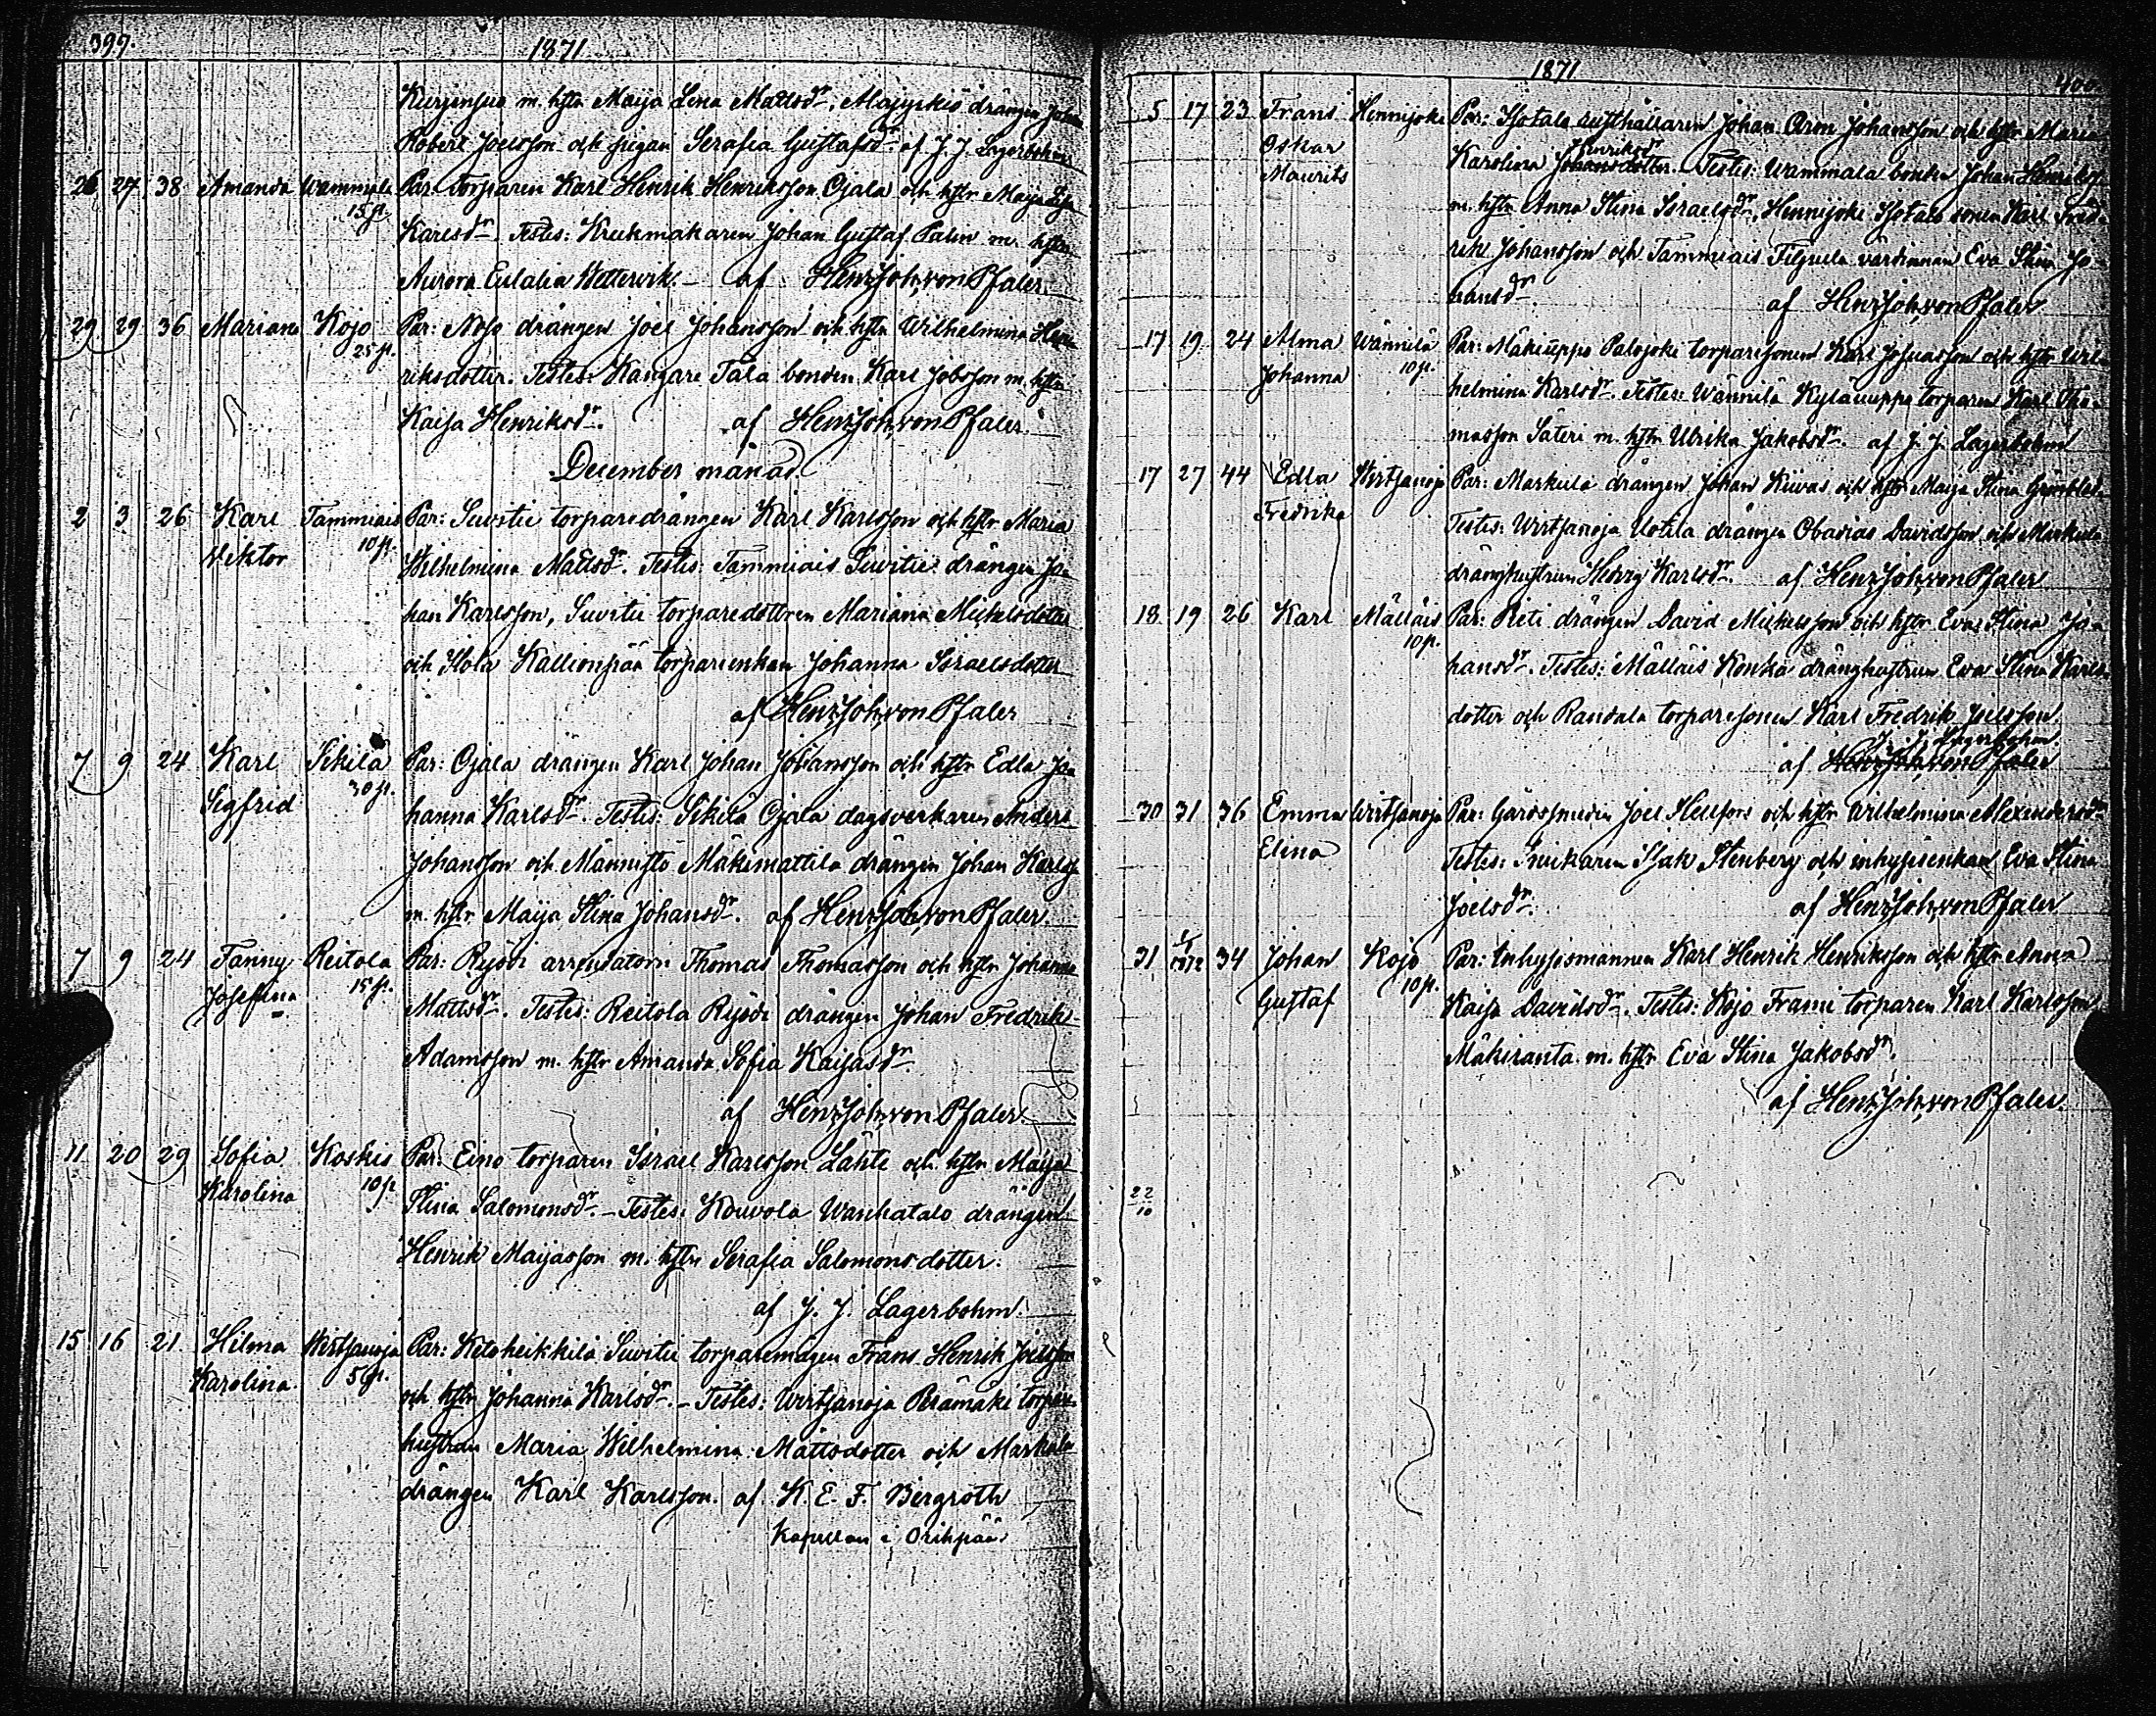 399.
1871
Kurjensuo m. hstr Maija Lena Mattsdr. drängen Johan
Robert Joelsson och pigan Serafia Gustafsdr. af J. J. Lagerbohm
26 27 38 Amanda Wammala Par: Torparen Karl Henrik Henriksson Ojala och hstr Maija Lisa
15 p. Karlsdr. Testes: Krukmakaren Johan Gustaf Palin m. hstr
Aurora Eulalia Wettervik. af Henr. Joh. von Pfaler
29 29 36 Mariana Kojo Par: drängen Joel Johansson och hstr Wilhelmina Hen-
25 p. riksdotter. Testes: Kangare Tala bonden Karl Jobsson m. hstr
Kaisa Henriksdr. af Henr. Joh. von Pfaler.
December månad
2 3 26 Karl Tammiais Par: Suvitie torparedrängen Karl Karlsson och hstr Maria
Viktor 10 p. Wilhelmina Mattsdr. Testes: Tammiais Suvitie drängen Jo-
han Karlsson, Suvitie torparedottren Mariana Mickelsdotter
och Ilola Kallionpää torparienkan Johanna Israelsdotter
af Henr. Joh. von Pfaler
7 9 24 Karl Sikilä Par: Ojala drängen Karl Johan Johansson och hstr Edla Jo-
Sigfrid 30 p. hanna Karlsdr. Testes: Sikilä Ojala dagsverkaren Anders
Johansson och Männistö Mäkimattila drängen Johan Karlss.
m. hstr Maija Stina Johansdr. af Henr. Joh. von Pfaler
7 9 24 Fanny Reitola Par: Rijövi arrendatorn Thomas Thomasson och hstr Johanna
Josefina 15 p. Mattsdr. Testes: Reitola Rijövi drängen Johan Fredrik
Adamsson m. hstr Amanda Sofia Kaijasdr.
af Henr. Joh. von Pfaler.
11 20 29 Sofia Koskis Par: Eino torparen Israel Karlsson Lähte och hstr Maija
Karolina 10 p. Stina Salomonsdr. – Testes: Kouvola Wanhatalo drängen
Henrik Maijasson m. hstr Serafia Salomonsdotter.
af J. J. Lagerbohm.
15 16 21 Hilma Wirtsanoja Par: Ketoheikkilä Suvitie torparemågen Frans Henrik Joelsson
Karolina. 5 p. och hstr Johanna Karlsdr. – Testes: Wirtsanoja Perämäki torpar-
hustrun Maria Wilhelmina Mattsdotter och Markula
drängen Karl Karlsson. af K. E. F. Bergroth
Kapellan i Oripää
1871
400.
5 17 23 Frans Hennijoki Par: Isotalo rusthållaren Johan Aron Johansson och hstr Maria
Oskar Karolina Henriksdr Johansdotter. – Testes: Wammala bonden Johan Henriksson
Maurits m. hstr Anna Stina Israelsdr, Hennijoki Isotalo sonen Karl Fred-
rik Johansson och Tammiais Filpula värdinnan Eva Stina Jo-
hansdr. af Henr. Joh. von Pfaler
17 19 24 Alma Wännilä Par: Mäkiuppo Palojoki torparesonen Karl Josuasson och hstr Wil-
Johanna 10 p. helmina Karlsdr. Testes: Wännilä Kyläuuppo torparen Karl Tho-
masson Säteri m. hstr Ulrika Jakobsdr. af J. J. Lagerbohm
17 27 44 Edla Wirtsanoja Par: Markula drängen Johan Kiwas och hstr Maija Stina
Fredrika Testes: Wirtsanoja Uotila drängen Obadias Davidsson och Markula
dränghustrun Hedvig Karlsdr. af Henr. Joh. von Pfaler
18 19 26 Karl Mälläis Par: Reti drängen David Mickelsson och hstr Eva Stina Jo-
10 p. hansdr. Testes: Mälläis Konka dränghustrun Eva Stina Karls-
dotter och Randala torparesonen Karl Fredrik Joelsson.
J. J. Lagerbohm.
af Henr. Joh. von Pfaler
30 31 36 Emma Wirtsanoja Par: Gårdssmeden Joel Hellfors och hstr Wilhelmina Alexandersdr
Elina Testes: Snickaren Isak Stenberg och inhysesenkan Eva Stina
Joelsdr. af Henr. Joh. von Pfaler
31 1/1 1872 34 Johan Kojo Par: Inhysismannen Karl Henrik Henriksson och hstr Anna
Gustaf 10 p. Kaisa Davidsdr. Testes: Kojo Frami torparen Karl Karlsson
Mäkiranta m. hstr Eva Stina Jakobsdr.
af Henr. Joh. von Pfaler.
22/10